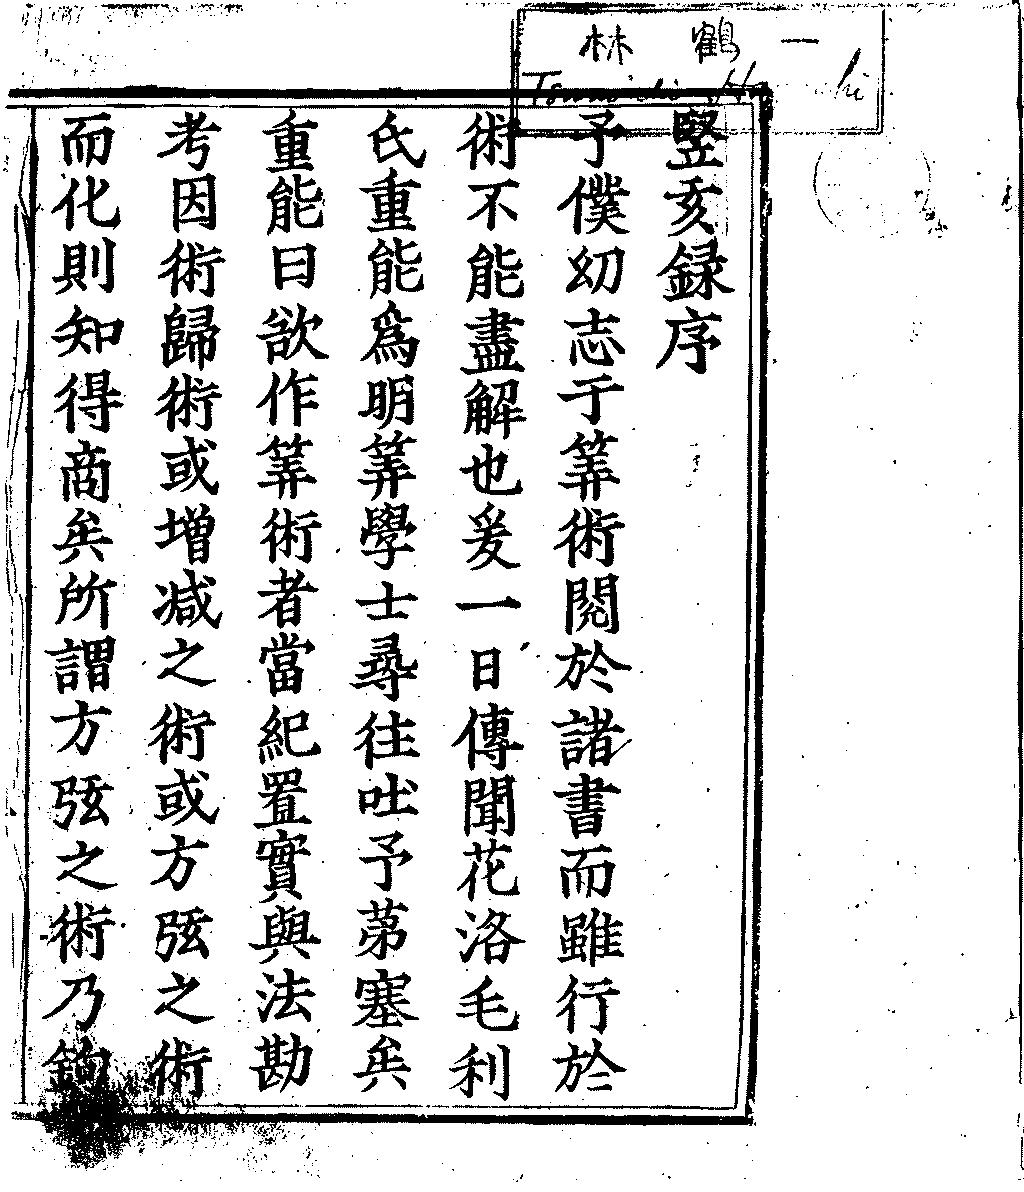 林 鶴 一
竪亥録序
予僕幼志于筭術閲於諸書而雖行於
術不能盡解也爰一日傳聞花洛毛利
氏重能爲明筭學士尋往吐予茅塞矣
重能曰欲作筭術者當紀置實與法勘
考因術歸術或増减之術或方弦之術
而化則知得商矣所謂方弦之術乃鉤